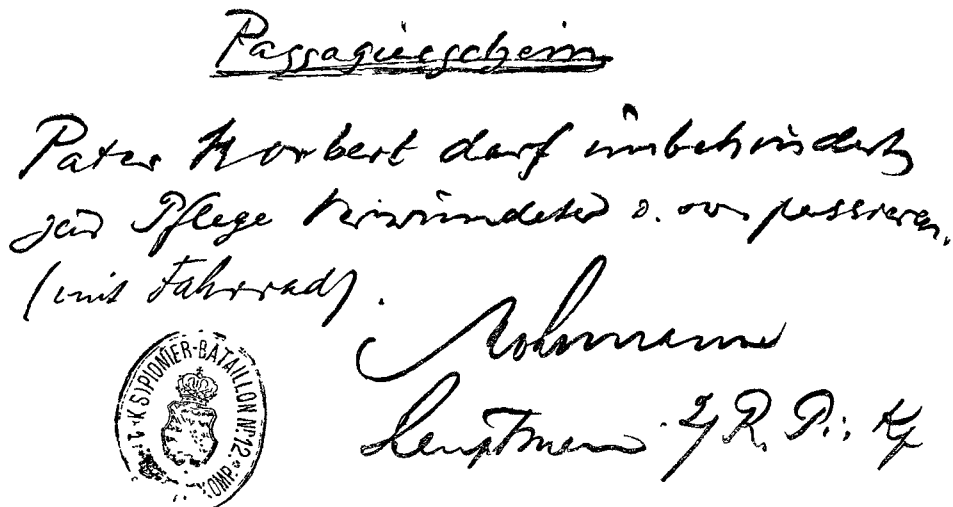 Passagierschein
Pater Norbert darf unbehindert
zur Pflege Verwundeter passieren.
(mit Fahrrad).
Hauptmann 2/ R. Pi. Kp
K S) PIONIER-BATAILLON No. 12 * KOMP.